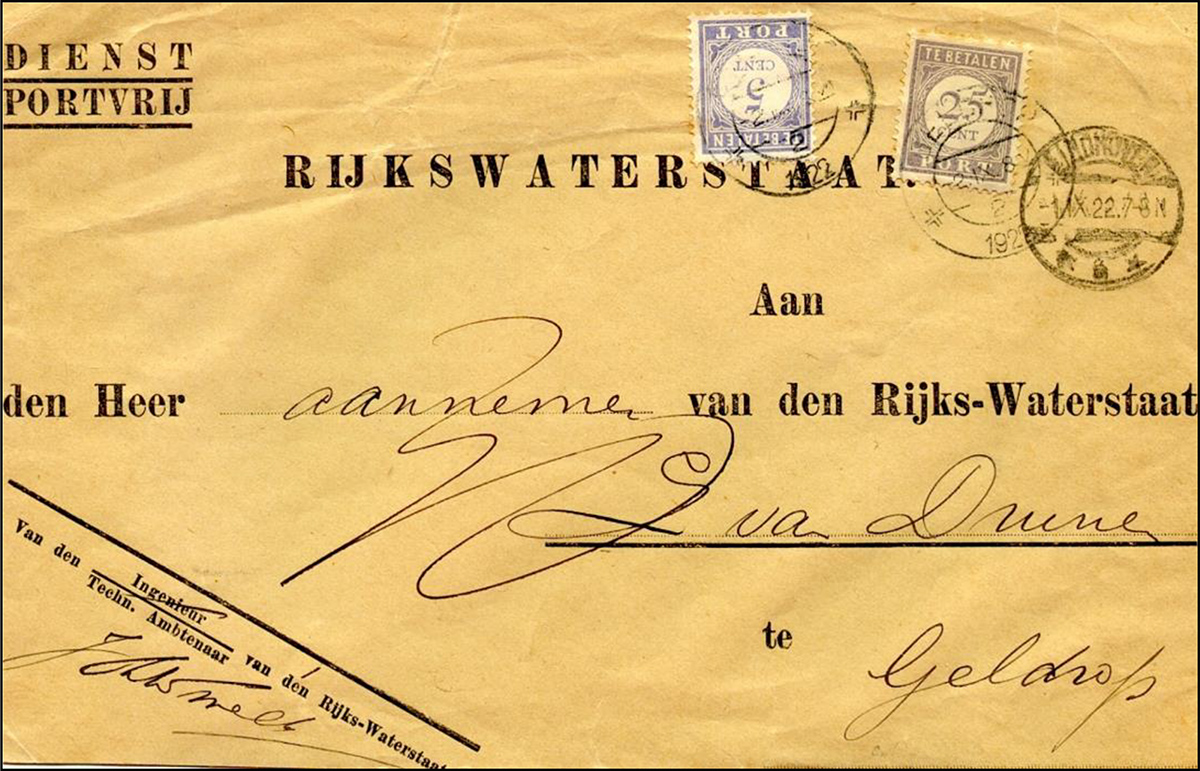 DIENST
PORTVRIJ
TE BETALEN
5
CENT
PORT
TE BETALEN
25
CENT
PORT
1922
192
-1.IX.22.7-8N
RIJKSWATERSTAAT.
Aan
den Heer aannemer van den Rijks-Waterstaat
van Dunne
te
Geldrop
Van den Ingenieur
Techn. Ambtenaar van den Rijks-Waterstaat